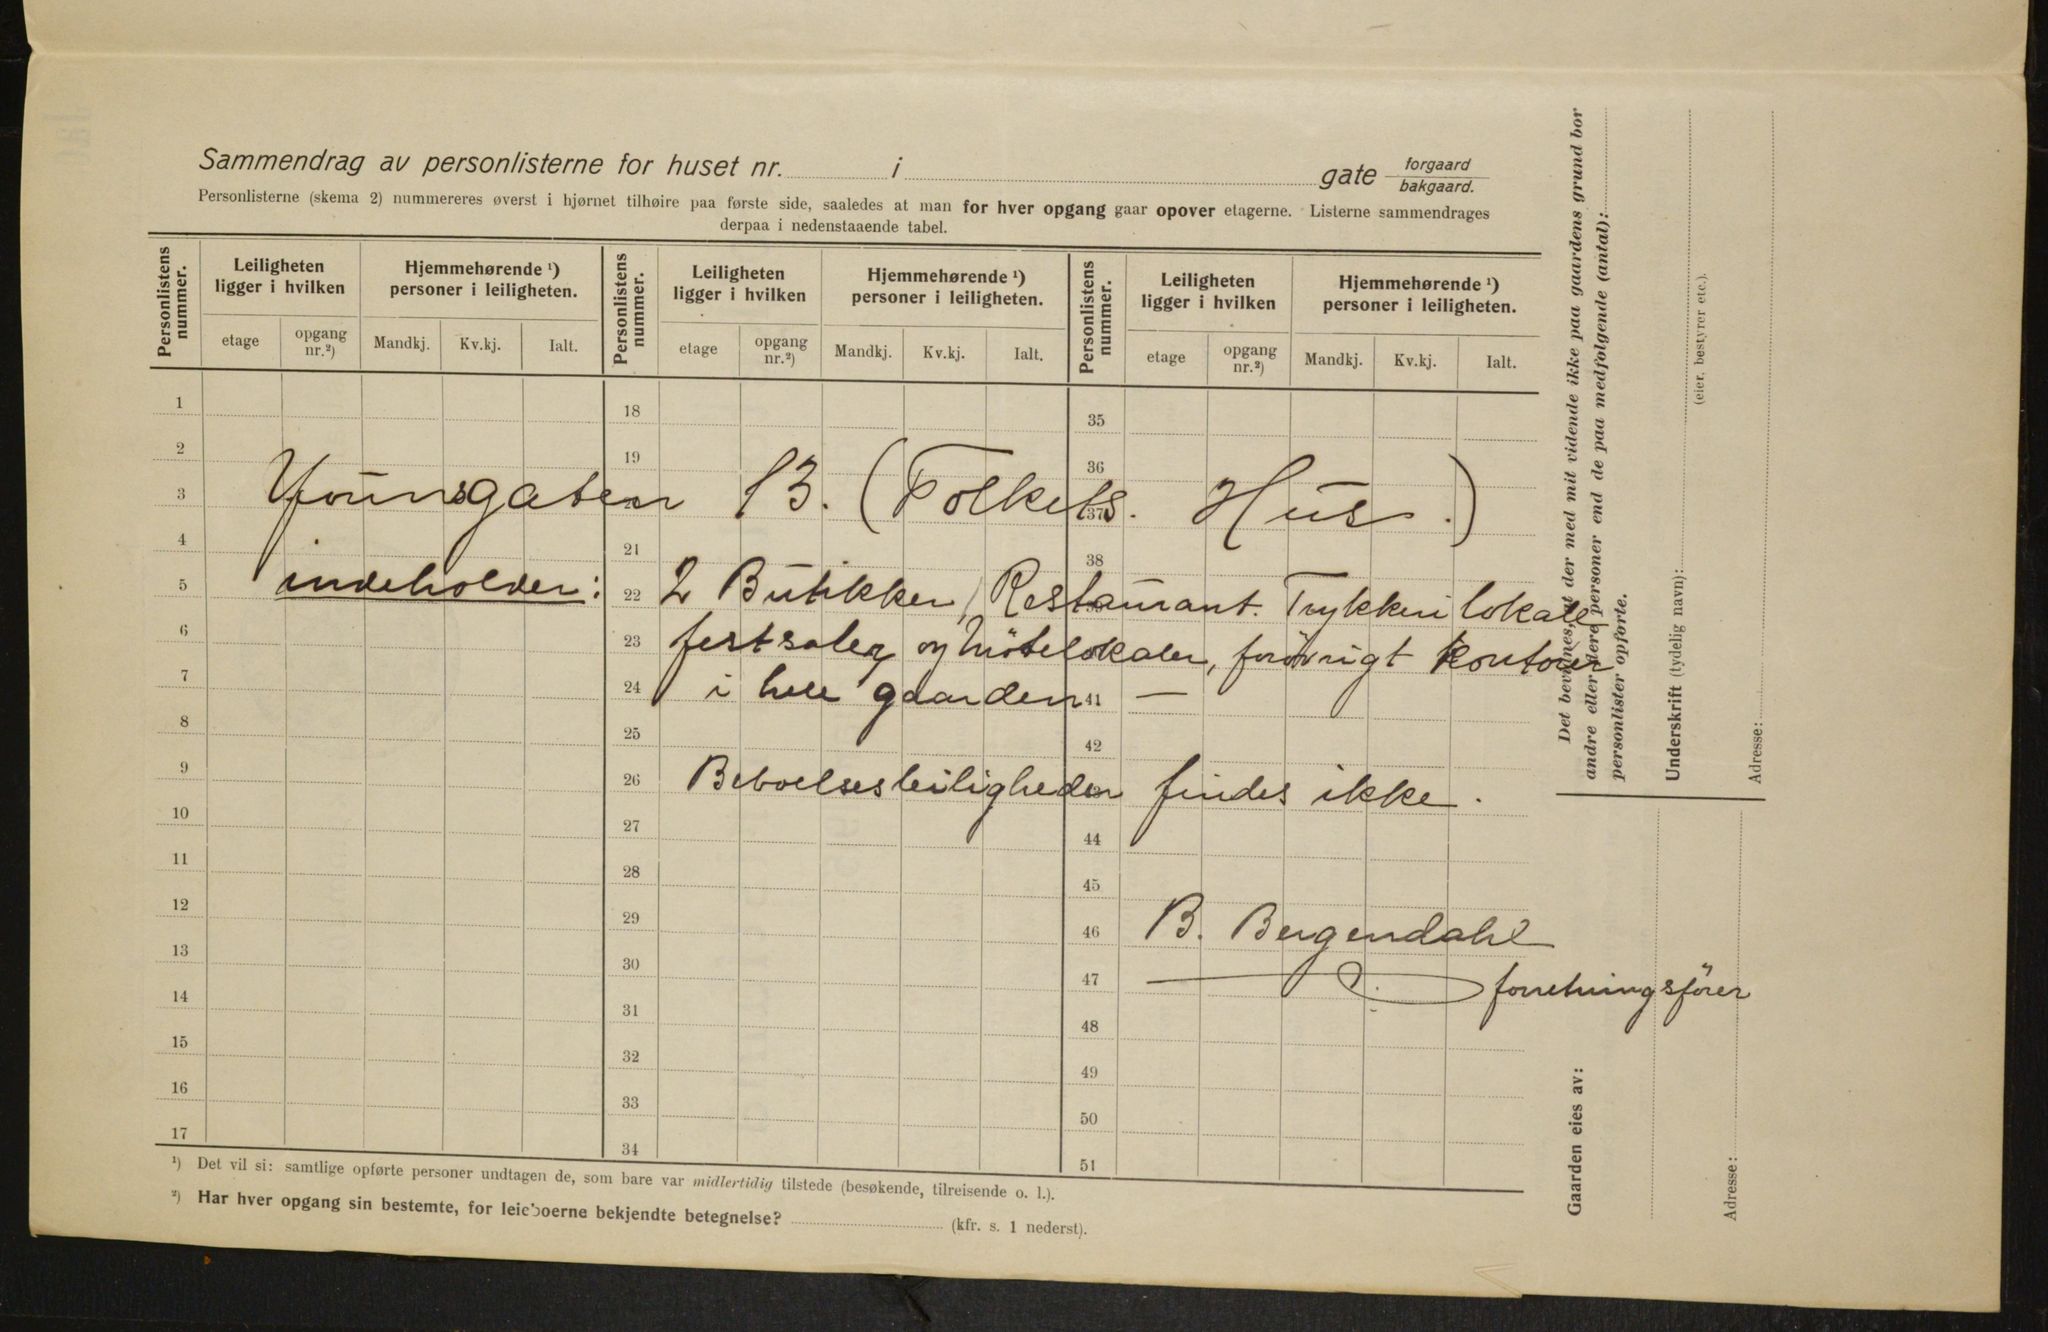 Sammendrag av personlisterne for huset nr. i gate forgaard
bakgaard.
Personlisterne (skema 2) nummereres øverst i hjørnet tilhøire paa første side, saaledes at man for hver opgang gaar opover etagerne. Listerne sammendrages
derpaa i nedenstaaende tabel.
Personlistens nummer. Leiligheten ligger i hvilken Hjemmehørende ¹) personer i leiligheten. Personlistens nummer. Leiligheten ligger i hvilken Hjemmehørende ¹) personer i leiligheten. Personlistens nummer. Leiligheten ligger i hvilken Hjemmehørende ¹) personer i leiligheten.
etage opgang nr.²) Mandkj. Kv.kj. Ialt. etage opgang nr.²) Mandkj. Kv.kj. Ialt. etage opgang nr.²) Mandkj. Kv.kj. Ialt.
1 18 35
2 19 36
3 37
Youngsgaten 13. (Folkets Hus.)
4 21 38
5 22
indeholder: 2 Butikker, Restaurant. Trykkeri lokale
6 23
festsaler og Mötelokaler, forövrigt kontorer
7 24 41
i hele gaarden —
8 25 42
9 26
Beboelsesleiligheder findes ikke.
10 27 44
11 28 45
12 29 46
B. Bergendahl
13 30 47
forretningsförer
14 31 48
15 32 49
16 33 50
17 34 51
¹) Det vil si: samtlige opførte personer undtagen de, som bare var midlertidig tilstede (besøkende, tilreisende o. l.).
²) Har hver opgang sin bestemte, for leieboerne bekjendte betegnelse? (kfr. s. 1 nederst).
Det bevidnes, at der med mit vidende ikke paa gaardens grund bor
andre eller flere personer end de paa medfølgende (antal):
personlister opførte.
Underskrift (tydelig navn):
(eier, bestyrer etc.).
Adresse:
Gaarden eies av:
Adresse: